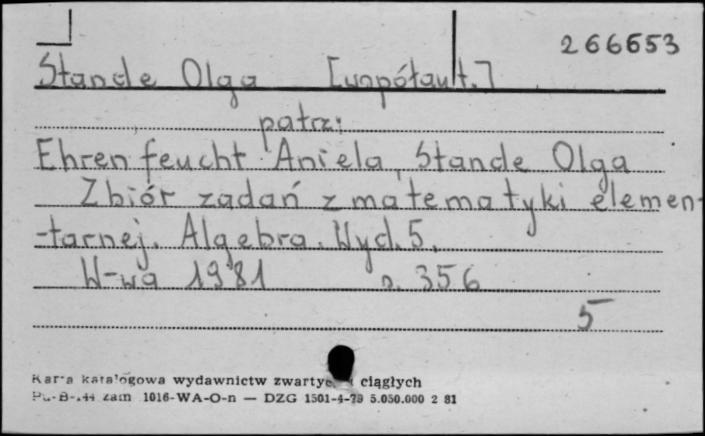 266653
Stande Olga [współaut.]
patrz:
Ehrenfeucht Aniela, Stande Olga
Zbiór zadań z matematyki elemen-
-tarnej. Algebra. Wyd. 5.
W-wa 1981 s. 356
5
Karta katalogowa wydawnictw zwartych i ciągłych
zam 1016-WA-O-n — DZG 1501-4-79 5.050.000 2 81